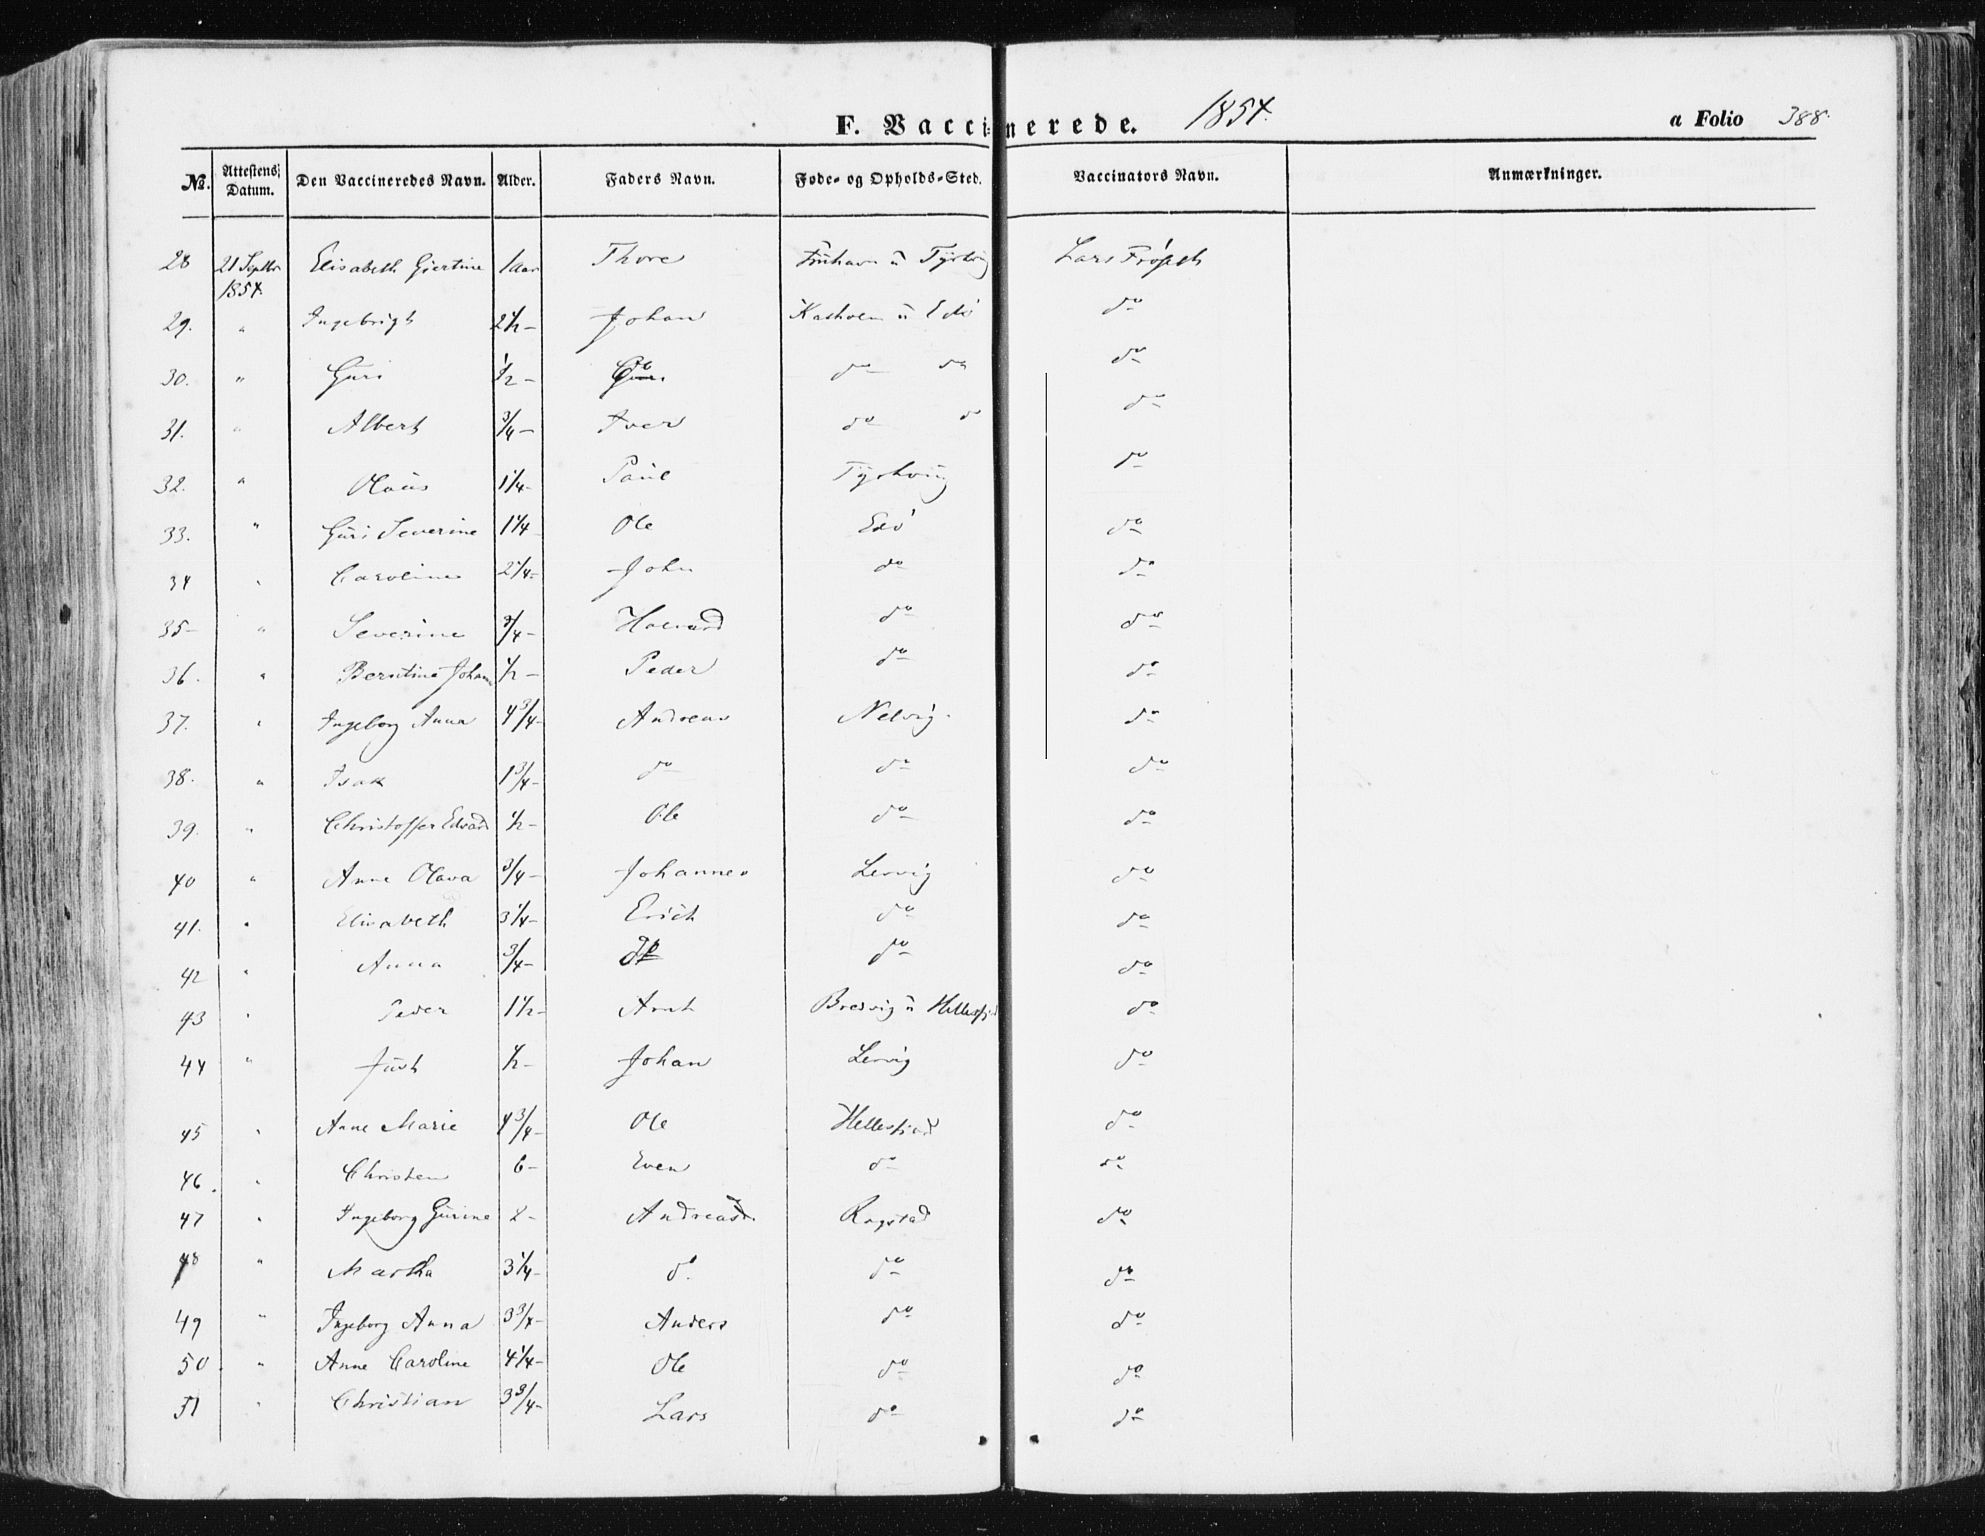 F. Vaccinerede. 1854. a Folio 388.
No. Attestens Datum. Den Vaccineredes Navn. Alder. Faders Navn. Føde- og Opholds-Sted. Vaccinators Navn. Anmærkninger.
28 21 Septbr 1854. Elisabeth Giertine 1 aar Thore u Tyrhvig Lars
29. " Ingebrigt 2½ - Johan Kasholm u Edø do
30. " Guri ½ - do do do do
31. " Albert ¾ - Iver do do do
32. " Olaus 1¼ - Paul Tyrhvig do
33. " Guri Severine 1¼ Ole Edø do
34 " Caroline 2¼ - John do do
35 - " Severine ¾ - Halvard do do
36. " Berntine Johanne ½ - Peder do do
37. " Ingeborg Anna 4¾ - Andreas Nelvig. do
38. " Isak 1¾ - do do do
39. " Christoffer Edvard ½ - Ole do do
40 " Anne Olava ¾ - Johannes Lervig do
41. " Elisabeth 3¼ - Erich do do
42 " Anna ¾ - do do do
43 " Peder 1½ - Arnt Bredvig u Hellesfjord do
44 " Just ½ - Johan Lervig do
45 " Anne Marie 4¾ - Ole Hellesfjord do
46. " Christen 6 - Even do do
47 " Ingeborg Gurine 2 - Andreas Rogstad do
48 " Martha 3¼ - do. do do
49 " Ingeborg Anna 3¾ - Anders do do
50. " Anne Caroline 4¼ - Ole do do
51 " Christian 3¾ - Lars do do